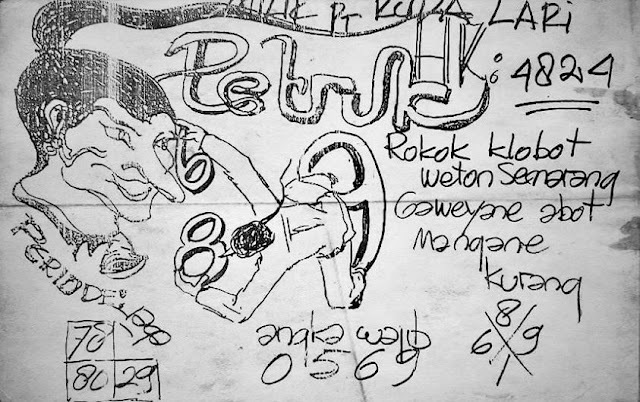 PT KUDA LARI
HK: 4824
Rokok klobot
weton Semarang
Gaweyane abot
Mangane
kurang
6
9
8
PERIODE:
78
80 29
angka wajib
0 5 6 9
8
6 9